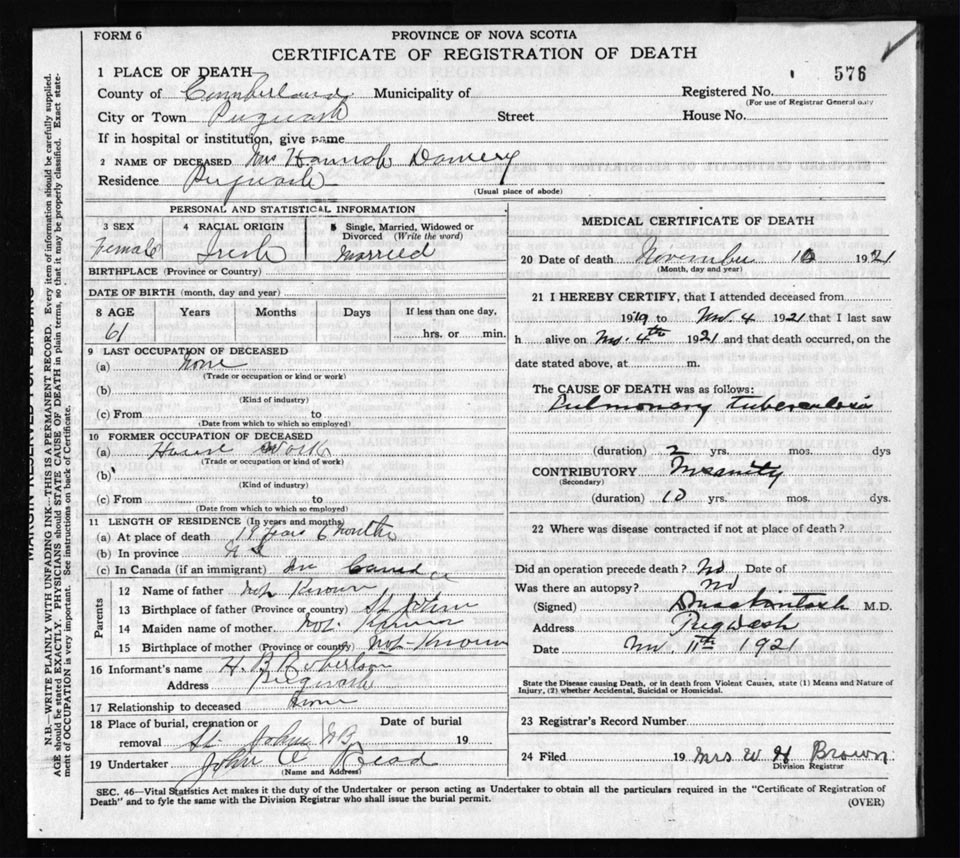 FORM 6
PROVINCE OF NOVA SCOTIA
CERTIFICATE OF REGISTRATION OF DEATH
576
1 PLACE OF DEATH
County of Cumberland Municipality of Registered No.
(For use of Registrar General only
City or Town Pugwash Street House No.
If in hospital or institution, give name
2 NAME OF DECEASED Mrs Hannah Damery
Residence Pugwash
(Usual place of abode)
PERSONAL AND STATISTICAL INFORMATION
3 SEX 4 RACIAL ORIGIN 5 Single, Married, Widowed or Divorced (Write the word)
Female Irish Married
BIRTHPLACE (Province or Country)
DATE OF BIRTH (month, day and year)
8 AGE Years Months Days If less than one day,
61 hrs. or min.
9 LAST OCCUPATION OF DECEASED
(a) None
(Trade or occupation or kind or work)
(b)
(Kind of industry)
(c) From to
(Date from which to which so employed)
10 FORMER OCCUPATION OF DECEASED
(a) House Work
(Trade or occupation or kind of work)
(b)
(Kind of industry)
(c) From to
(Date from which to which so employed)
11 LENGTH OF RESIDENCE (In years and months)
(a) At place of death 18 years 6 months
(b) In province N S
(c) In Canada (if an immigrant) In Canada
Parents
12 Name of father Not Known
13 Birthplace of father (Province or country) St John
14 Maiden name of mother Not Known
15 Birthplace of mother (Province or country) Not Known
16 Informant's name H. B. Robertson
Address Pugwash
17 Relationship to deceased None
18 Place of burial, cremation or removal St John NB Date of burial 19
19 Undertaker John A Read
(Name and Address)
MEDICAL CERTIFICATE OF DEATH
20 Date of death November 10 1921
(Month, day and year)
21 I HEREBY CERTIFY, that I attended deceased from
1919 to Nov. 4 1921 that I last saw
h alive on Nov. 4th 1921 and that death occurred, on the
date stated above, at m.
The CAUSE OF DEATH was as follows:
Pulmonary tuberculosis
(duration) 2 yrs. mos. dys
CONTRIBUTORY Insanity
(Secondary)
(duration) 10 yrs. mos. dys.
22 Where was disease contracted if not at place of death?
Did an operation precede death? No Date of
Was there an autopsy? No
(Signed) M.D.
Address Pugwash
Date Nov 11th 1921
State the Disease causing Death, or in death from Violent Causes, state (1) Means and Nature of
Injury, (2) whether Accidental, Suicidal or Homicidal.
23 Registrar's Record Number
24 Filed 19 Mrs W H Brown
Division Registrar
SEC. 46—Vital Statistics Act makes it the duty of the Undertaker or person acting as Undertaker to obtain all the particulars required in the "Certificate of Registration of
Death" and to fyle the same with the Division Registrar who shall issue the burial permit.
(OVER)
MARGIN RESERVED FOR BINDING
N.B.—WRITE PLAINLY WITH UNFADING INK—THIS IS A PERMANENT RECORD. Every item of information should be carefully supplied.
AGE should be stated EXACTLY. PHYSICIANS should STATE CAUSE OF DEATH in plain terms, so that it may be properly classified. Exact state-
ment of OCCUPATION is very important. See instructions on back of Certificate.